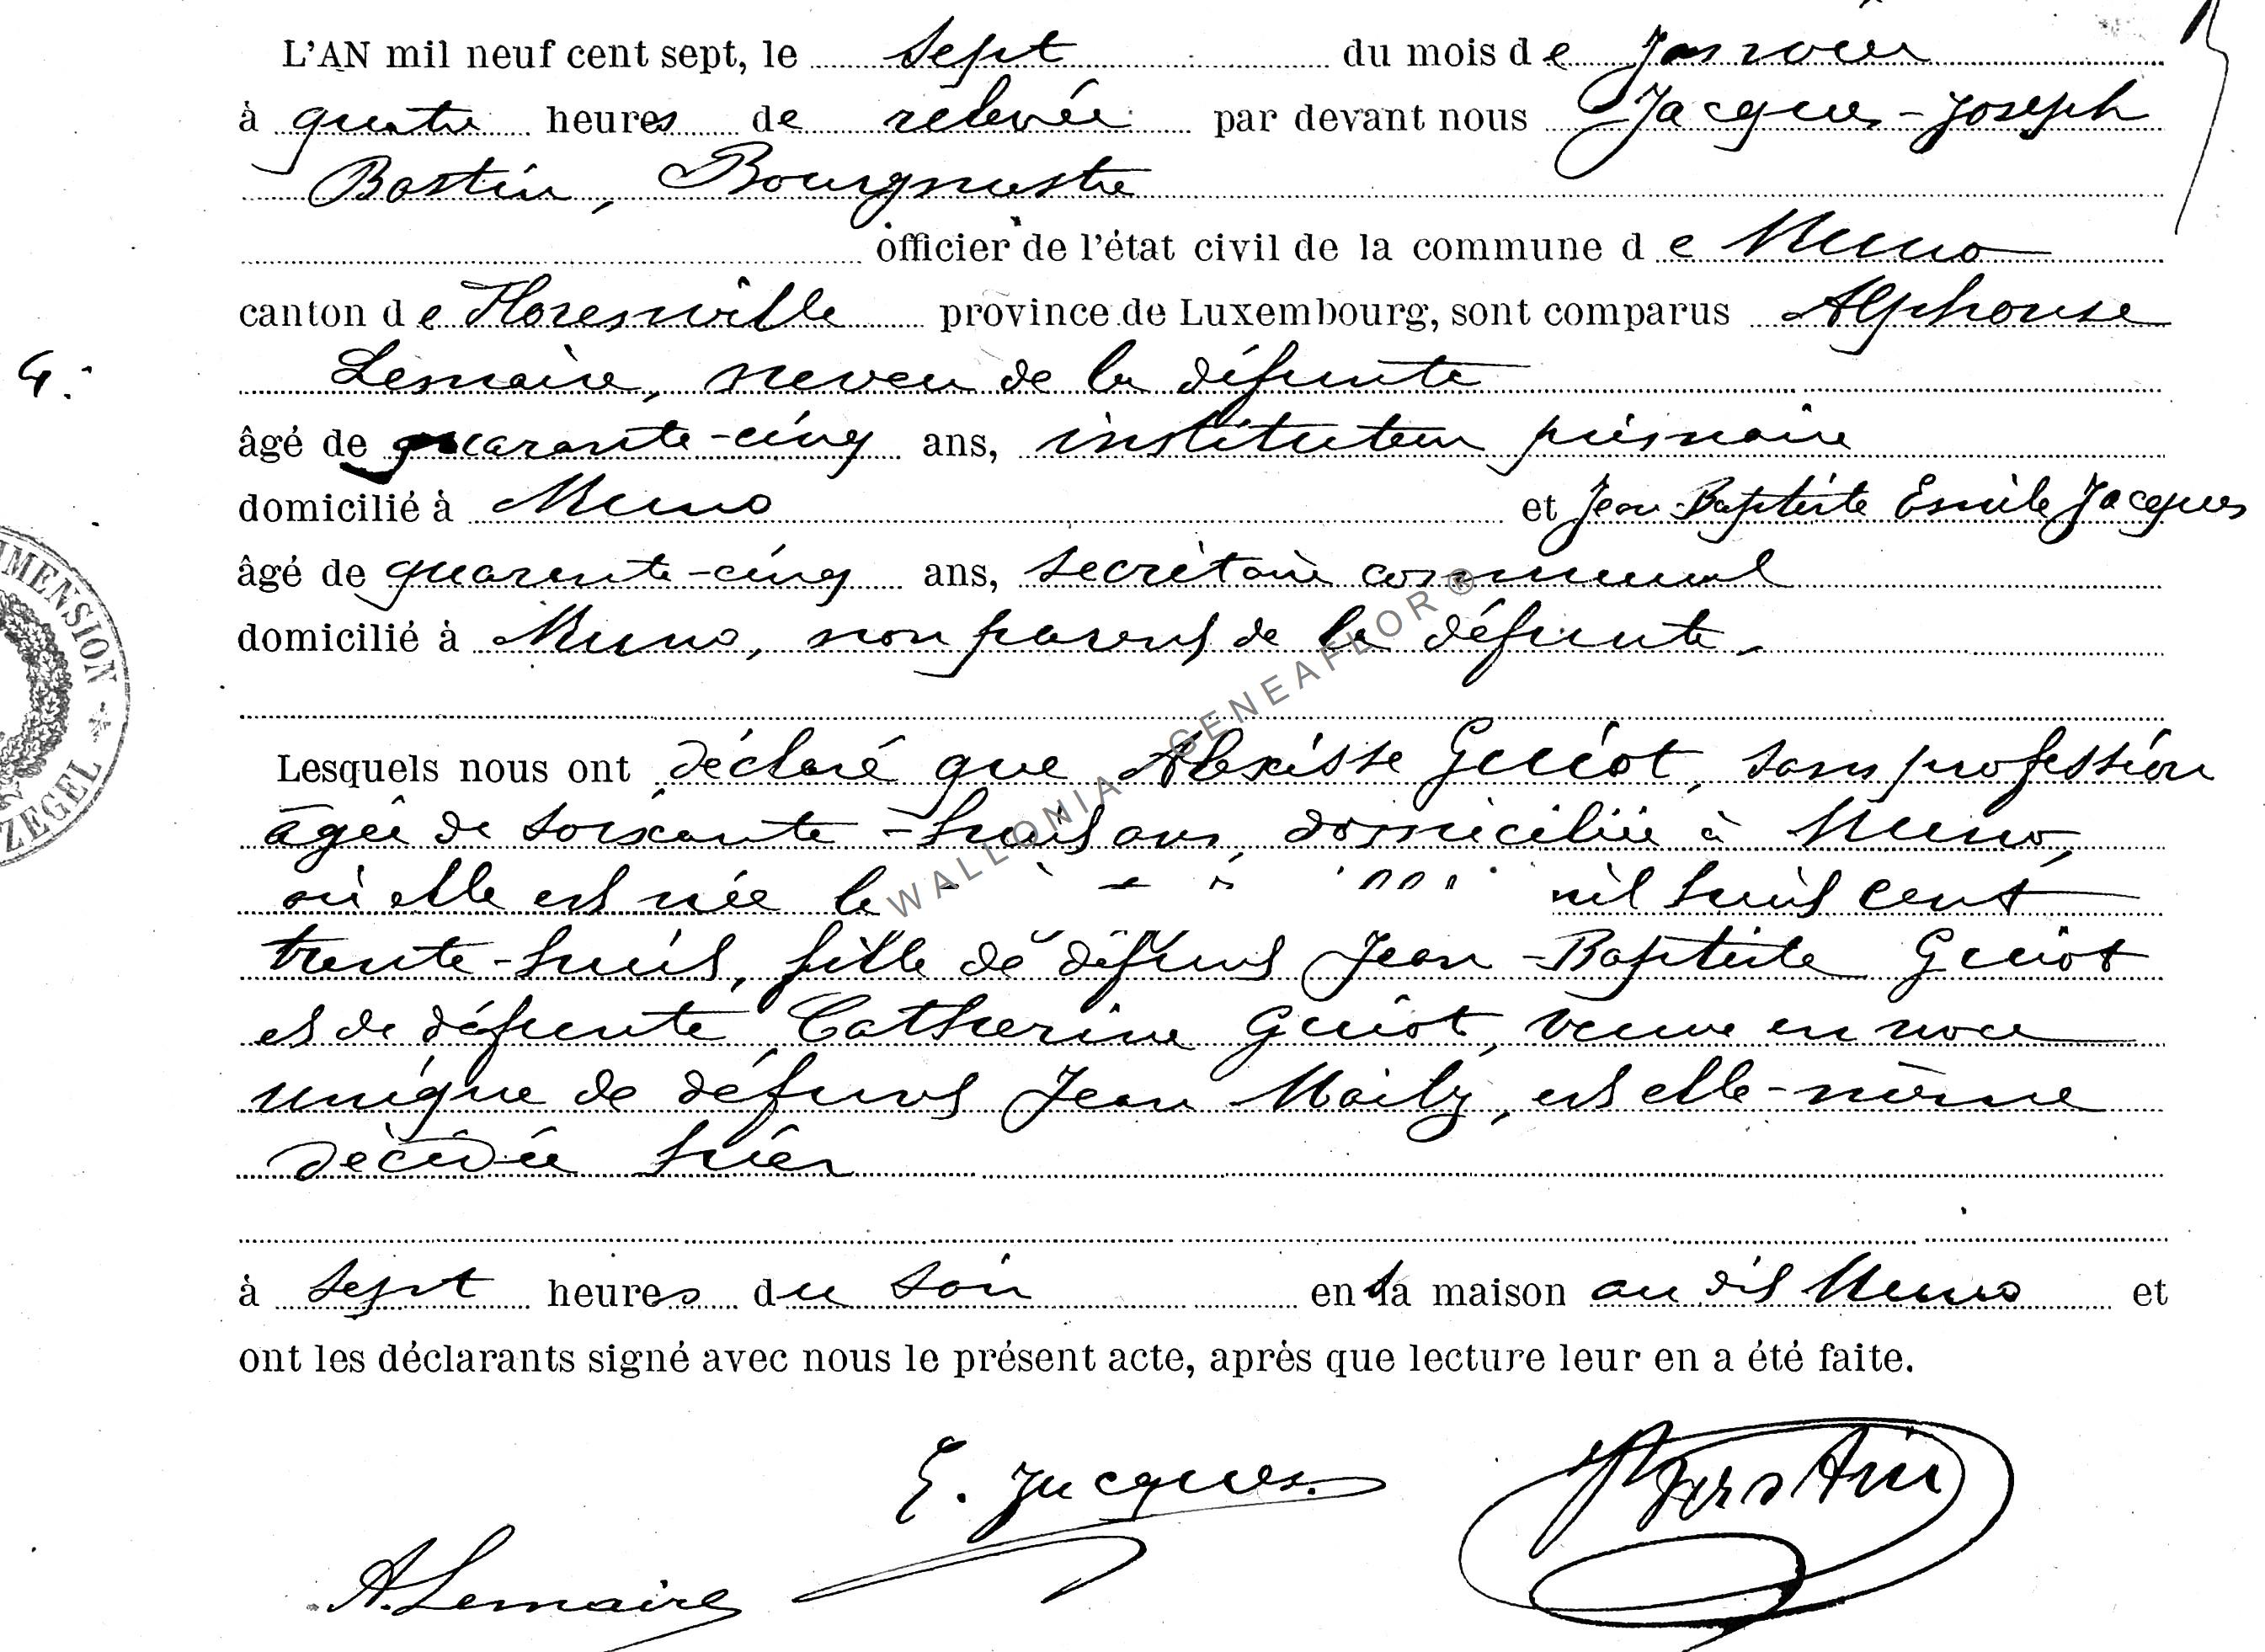 L'AN mil neuf cent sept, le sept du mois de Janvier
à quatre heures de relevée par devant nous Jacques-Joseph
Bastin, Bourgmestre
officier de l'état civil de la commune de Muno
canton de Florenville province de Luxembourg, sont comparus Alphonse
4.
Lemaire, neveu de la défunte
âgé de quarante-cinq ans, instituteur primaire
domicilié à Muno et Jean-Baptiste Emile Jacques
âgé de quarante-cinq ans, secrétaire communal
domicilié à Muno, non parent de la défunte.
Lesquels nous ont déclaré que Alexisse Guiot, sans profession
âgée de soixante-huit ans, domiciliée à Muno,
où elle est née le mil huit cent
trente-huit, fille de défunt Jean-Baptiste Guiot
et de défunte Catherine Guiot, veuve en noce
unique de défunt Jean Mailly, est elle-même
décédée hier
à sept heures du soir en sa maison au dit Muno et
ont les déclarants signé avec nous le présent acte, après que lecture leur en a été faite.
E. Jacques
Bastin
A. Lemaire
WALLONIA GENEAFLOR ®
DIMENSION * ZEGEL